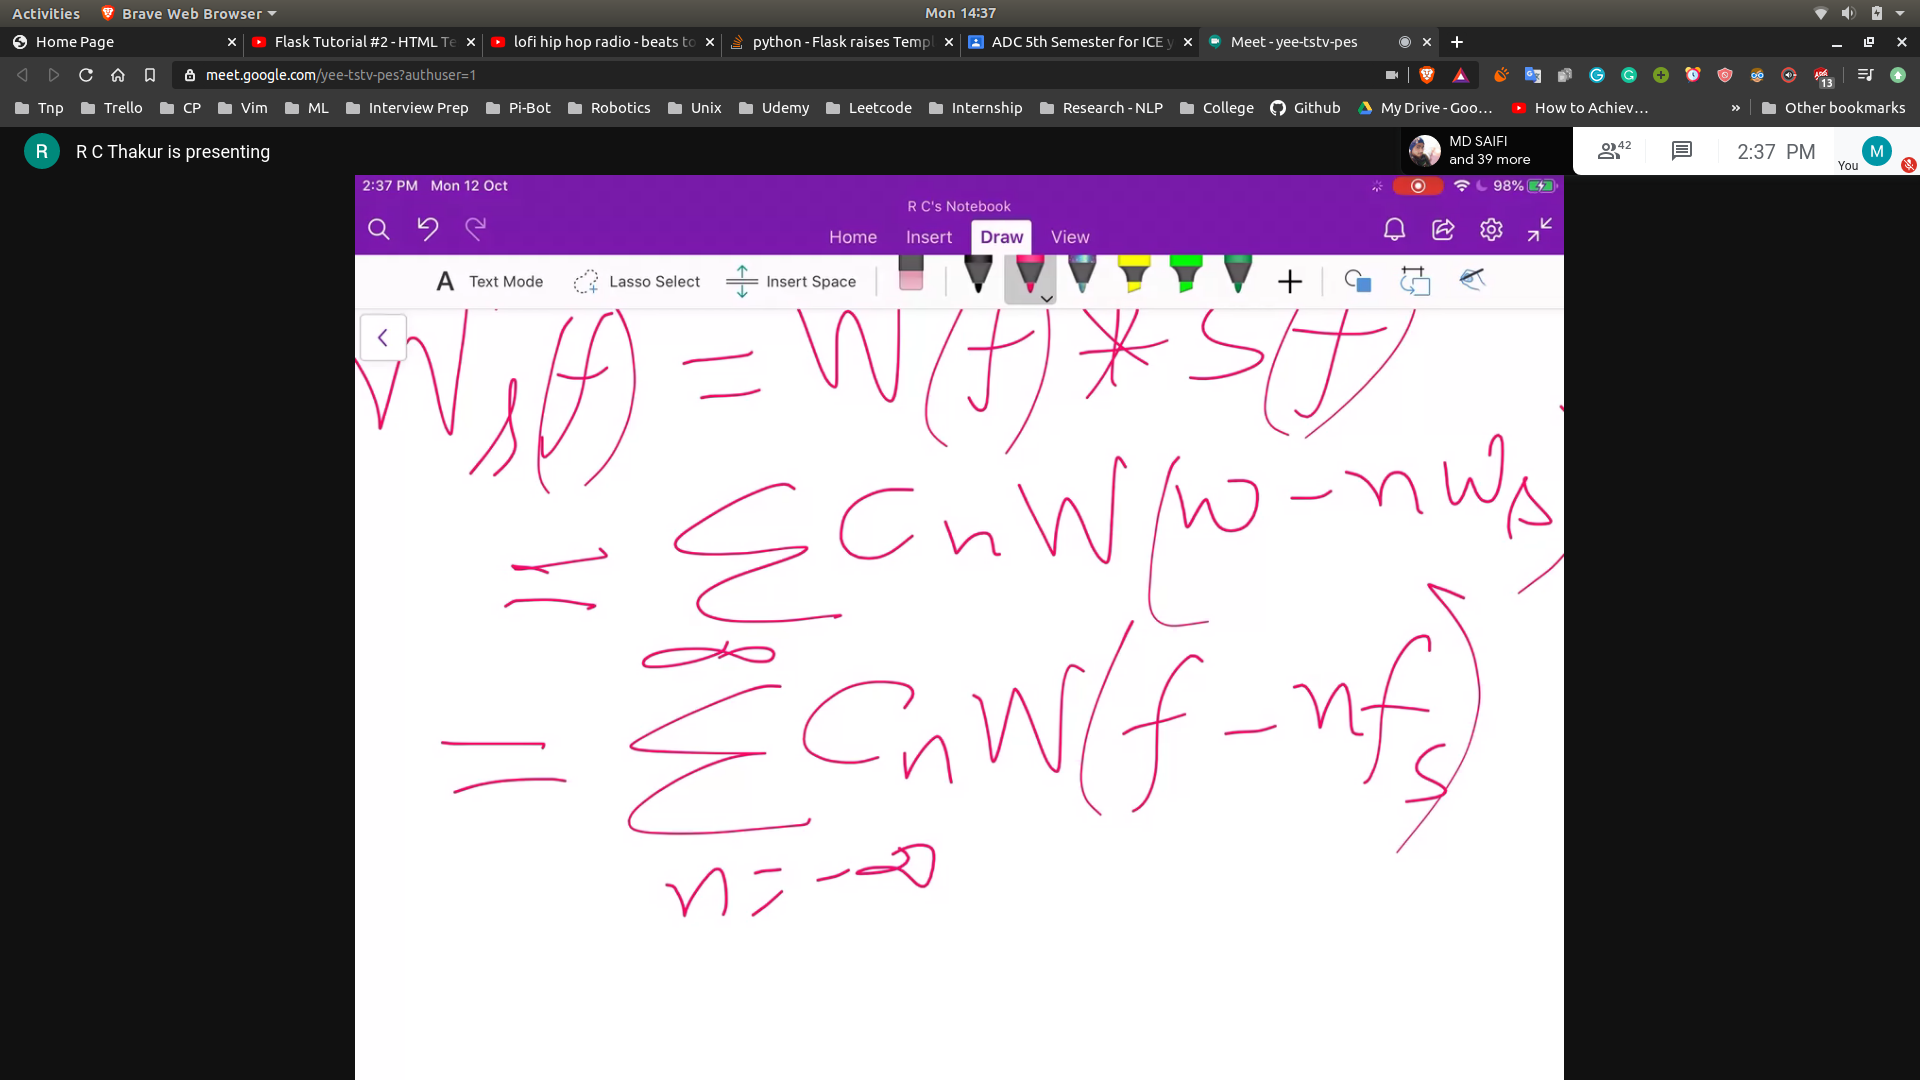 Activities Brave Web Browser Mon 14:37
Home Page Flask Tutorial #2 - HTML Te lofi hip hop radio - beats to python - Flask raises Templ ADC 5th Semester for ICE y Meet - yee-tstv-pes
meet.google.com/yee-tstv-pes?authuser=1 13
Tnp Trello CP Vim ML Interview Prep Pi-Bot Robotics Unix Udemy Leetcode Internship Research - NLP College Github My Drive - Goo... How to Achiev... » Other bookmarks
R R C Thakur is presenting MD SAIFI
and 39 more 42 2:37 PM You M
2:37 PM Mon 12 Oct 98%
R C's Notebook
Home Insert Draw View
A Text Mode Lasso Select Insert Space
W_s(f) = W(f) * S(f)
= Σ C_n W(w - n w_s)
∞
= Σ C_n W(f - n f_s)
n = -∞